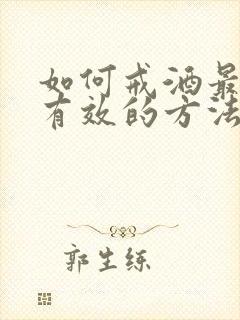 如何戒酒最
有效的方法
郭生练